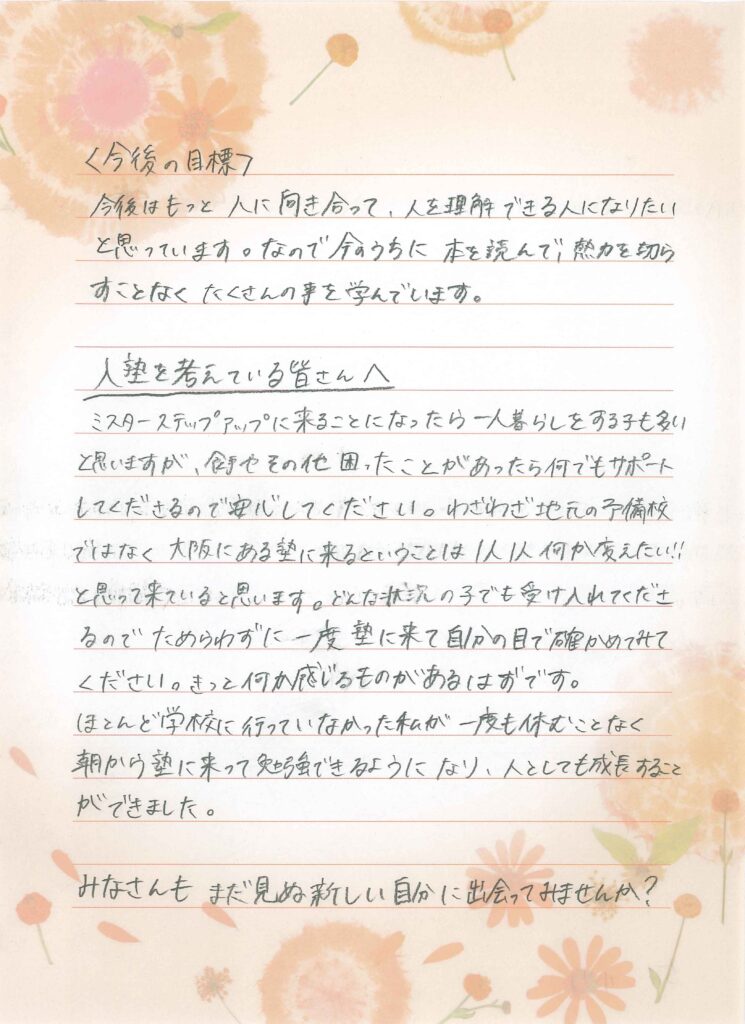 <今後の目標>
今後はもっと人に向き合って、人を理解できる人になりたい
と思っています。なので今のうちに本を読んで、熱力を切ら
すことなくたくさんの事を学んでいます。
入塾を考えている皆さんへ
ミスターステップアップに来ることになったら一人暮らしをする子も多い
と思いますが、食事やその他困ったことがあったら何でもサポート
してくださるので安心してください。わざわざ地元の予備校
ではなく大阪にある塾に来るということは1人1人何か変えたい!!
と思って来ていると思います。どんな状況の子でも受け入れてくださ
るのでためらわずに一度塾に来て自分の目で確かめてみて
ください。きっと何か感じるものがあるはずです。
ほとんど学校に行っていなかった私が一度も休むことなく
朝から塾に来って勉強できるようになり、人としても成長すること
ができました。
みなさんもまだ見ぬ新しい自分に出会ってみませんか?